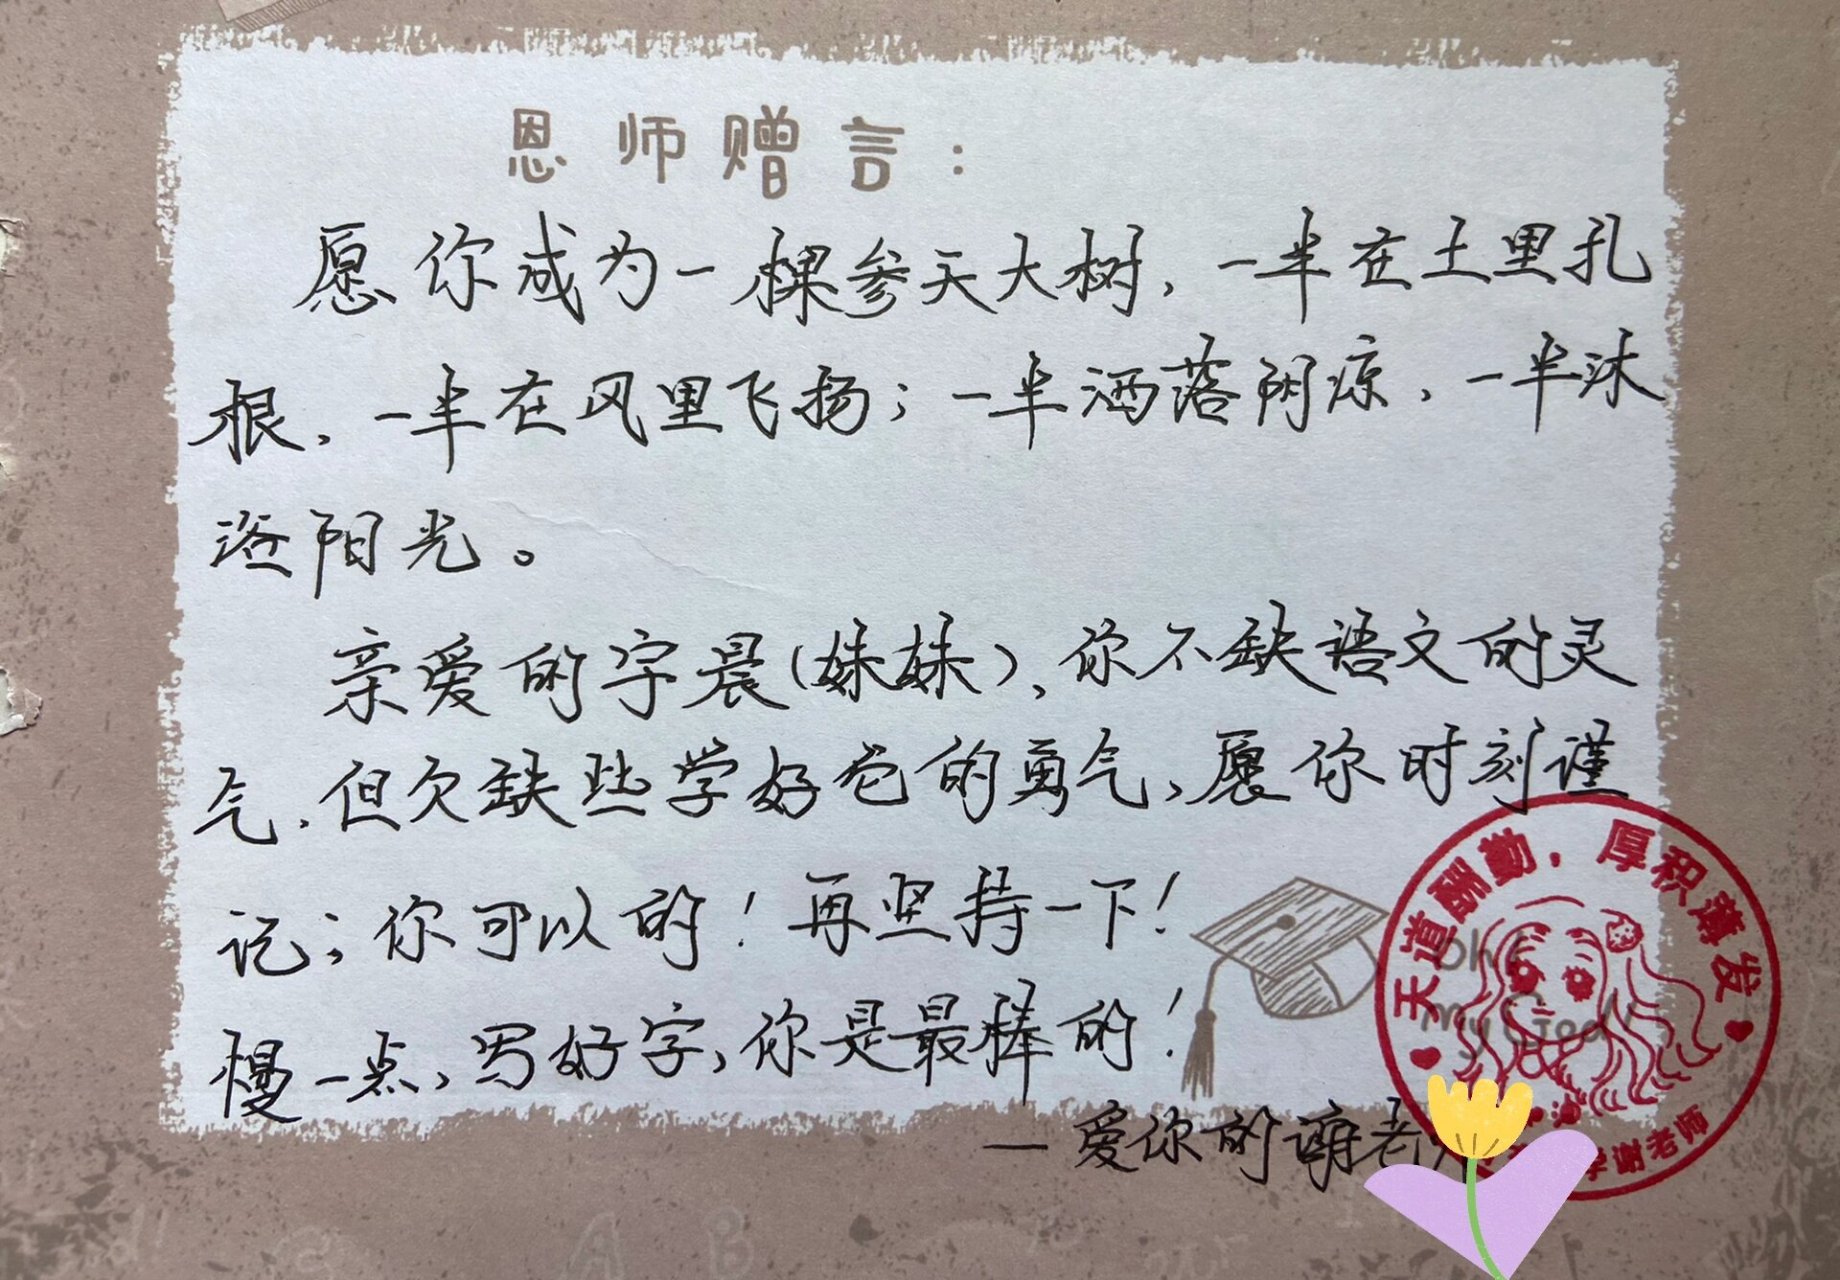 恩师赠言：
愿你成为一棵参天大树，一半在土里扎
根，一半在风里飞扬；一半洒落阴凉，一半沐
浴阳光。
亲爱的宇晨（妹妹），你不缺语文的灵
气，但欠缺些学好它的勇气，愿你时刻谨
记；你可以的！再坚持一下！
慢一点，写好字，你是最棒的！
—爱你的谢老
天道酬勤，厚积薄发
Oh!
My God!
谢老师
A B